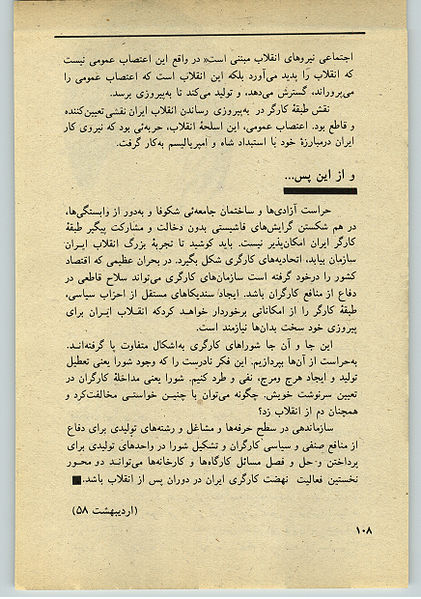 اجتماعی نیروهای انقلاب مبتنی است» در واقع این اعتصاب عمومی نیست
که انقلاب را پدید می‌آورد بلکه این انقلاب است که اعتصاب عمومی را
می‌پروراند، گسترش می‌دهد، و تولید می‌کند تا به‌پیروزی برسد.
نقش طبقهٔ کارگر در به‌پیروزی رساندن انقلاب ایران نقشی تعیین‌کننده
و قاطع بود. اعتصاب عمومی، این اسلحهٔ انقلاب، حربه‌ئی بود که نیروی کار
ایران درمبارزهٔ خود با استبداد شاه و امپریالیسم به‌کار گرفت.
و از این پس...
حراست آزادی‌ها و ساختمان جامعه‌ئی شکوفا و به‌دور از وابستگی‌ها،
در هم شکستن گرایش‌های فاشیستی بدون دخالت و مشارکت پیگیر طبقهٔ
کارگر ایران امکان‌پذیر نیست. باید کوشید تا تجربهٔ بزرگ انقلاب ایـران
سازمان بیابد، اتحادیه‌های کارگری شکل بگیرد. در بحران عظیمی که اقتصاد
کشور را درخود گرفته است سازمان‌های کارگری می‌تواند سلاح قاطعی در
دفاع از منافع کارگران باشد. ایجاد سندیکاهای مستقل از احزاب سیاسی،
طبقهٔ کارگر را از امکاناتی برخوردار خواهـد کردکه انقـلاب ایـران برای
پیروزی خود سخت بدان‌ها نیازمند است.
این جا و آن جا شوراهای کارگری به‌اشکال متفاوت پا گرفته‌انـد.
به‌حراست از آن‌ها بپردازیم. این فکر نادرست را که وجود شورا یعنی تعطیل
تولید و ایجاد هرج ومرج، نفی و طرد کنیم. شورا یعنی مداخلهٔ کارگران در
تعیین سرنوشت خویش. چگونه می‌توان با چنیـن خواستـی مخالفت‌کرد و
همچنان دم از انقلاب زد؟
سازماندهی در سطح حرفه‌ها و مشاغل و رشته‌های تولیدی برای دفاع
از منافع صنفی و سیاسی کارگران و تشکیل شورا در واحدهای تولیدی برای
پرداختن و حل و فصل مسائل کارگاه‌ها و کارخانه‌ها می‌توانـد دو محـور
نخستین فعالیت نهضت کارگری ایران در دوران پس از انقلاب باشد.■
(اردیبهشت ۵۸)
۱۰۸